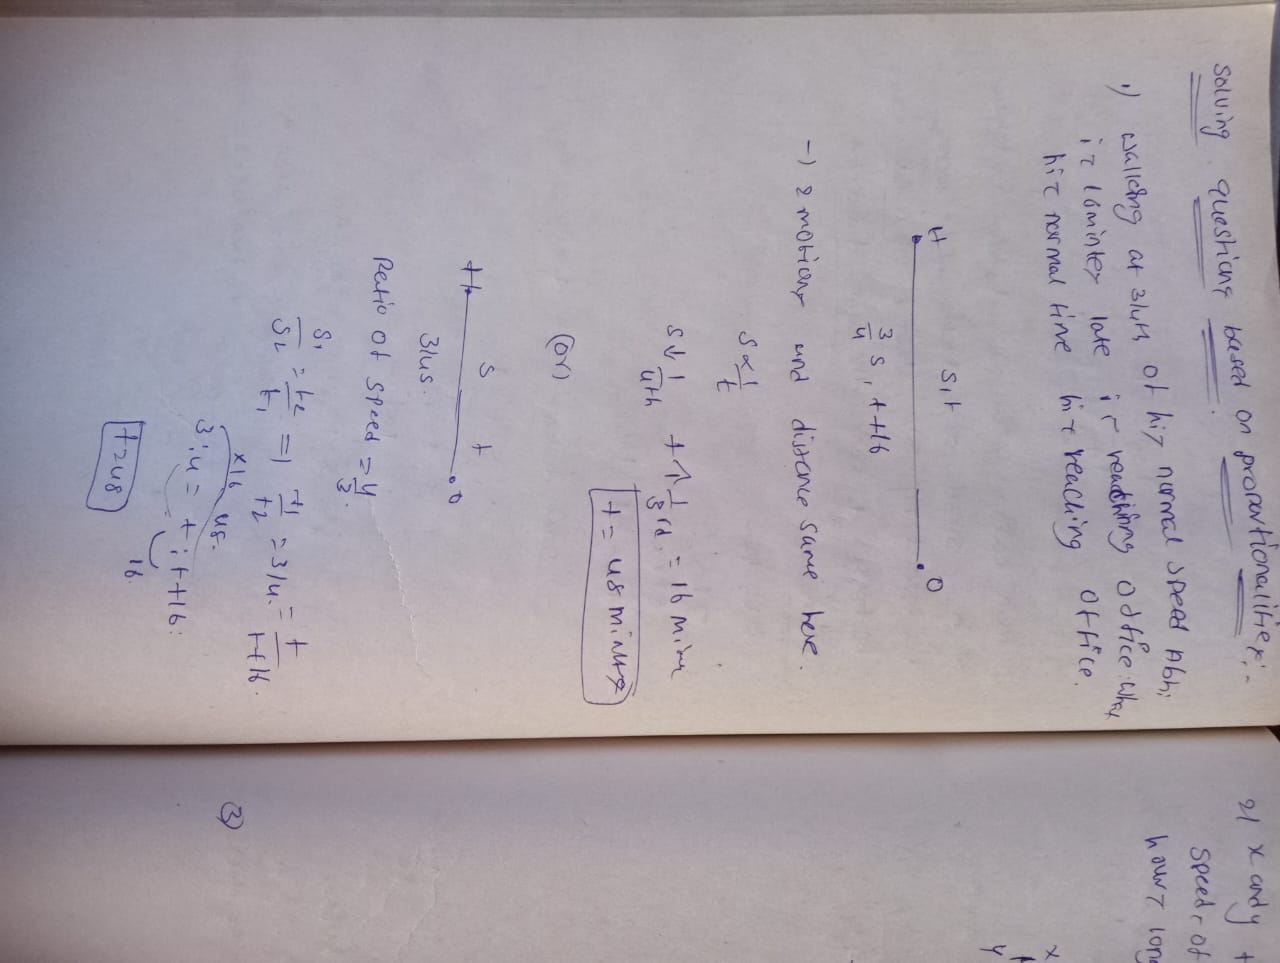 solving questions based on proportionalities:-
1) walking at 3/4th of his normal speed Abhi
is 16 minutes late is reaching office. what
his normal time his reaching office.
H S,t O
3/4 S, t+16
-) 2 motions and distance same here.
S ∝ 1/t
S↓ 1/4th t↑ 1/3rd = 16 mins
t = 48 minutes
(or)
H S t O
3/4 S.
Ratio of speed = 4/3.
S1/S2 = t2/t1 = 1 t1/t2 = 3/4. = t/t+16.
x16 48.
3:4 = t:t+16.
16
t=48
2) x and y t
speeds of
hours long
x
y t
3)